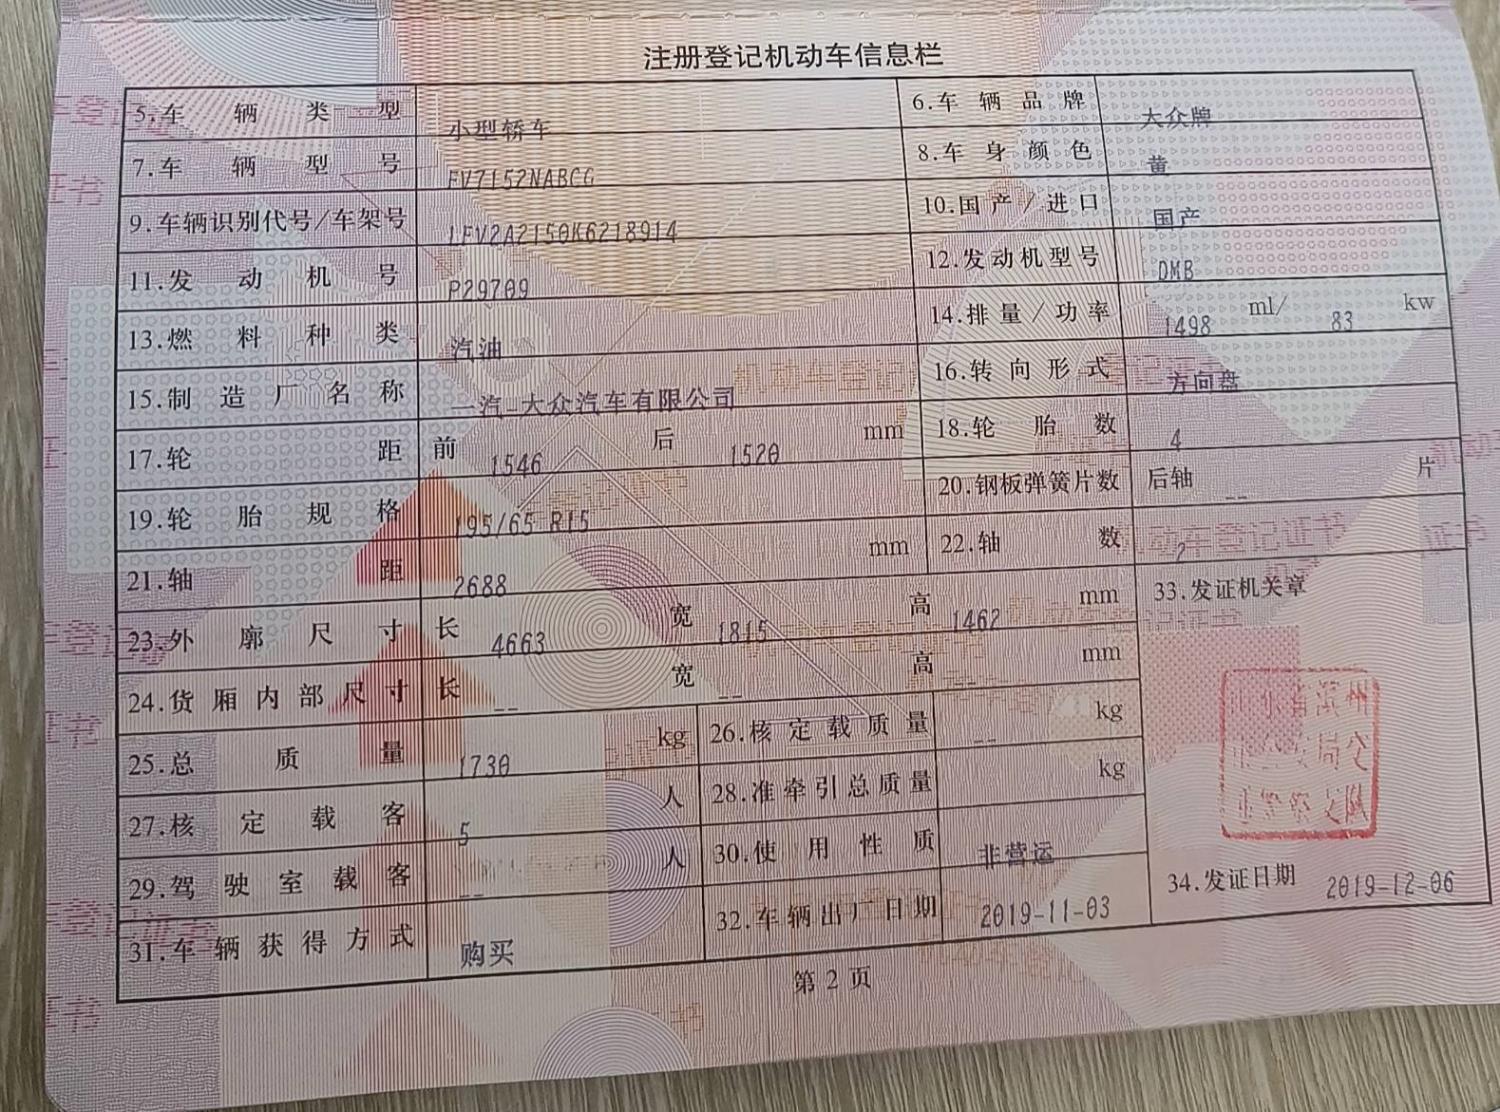 注册登记机动车信息栏
5.车辆类型 小型轿车 6.车辆品牌 大众牌
7.车辆型号 FV7152NABCG 8.车身颜色 黄
9.车辆识别代号/车架号 LFV2A2150K6218914 10.国产/进口 国产
11.发动机号 P29709 12.发动机型号 DMB
13.燃料种类 汽油 14.排量/功率 1498 ml/ 83 kw
15.制造厂名称 一汽-大众汽车有限公司 16.转向形式 方向盘
17.轮距 前 1546 后 1520 mm 18.轮胎数 4
19.轮胎规格 195/65 R15 20.钢板弹簧片数 后轴 -- 片
21.轴距 2688 mm 22.轴数 2
23.外廓尺寸 长 4663 宽 1815 高 1462 mm 33.发证机关章
24.货厢内部尺寸 长 -- 宽 -- 高 -- mm
25.总质量 1730 kg 26.核定载质量 -- kg
27.核定载客 5 人 28.准牵引总质量 kg
29.驾驶室载客 -- 人 30.使用性质 非营运
31.车辆获得方式 购买 32.车辆出厂日期 2019-11-03 34.发证日期 2019-12-06
第2页